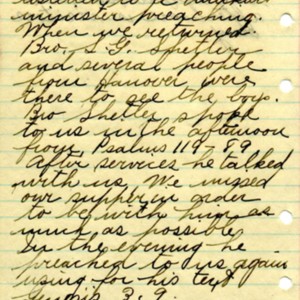 minister preaching.
When we returned
Bro. S. G. Shetler
and several people
from Hanover were
there to see the boys.
Bro Shetler spoke
to us in the afternoon
from Psalms 119-89
After services he talked
with us. We missed
our supper in order
to be with him as
much as possible
In the evening he
preached to us again
using for his text
Genesis 3, 9.